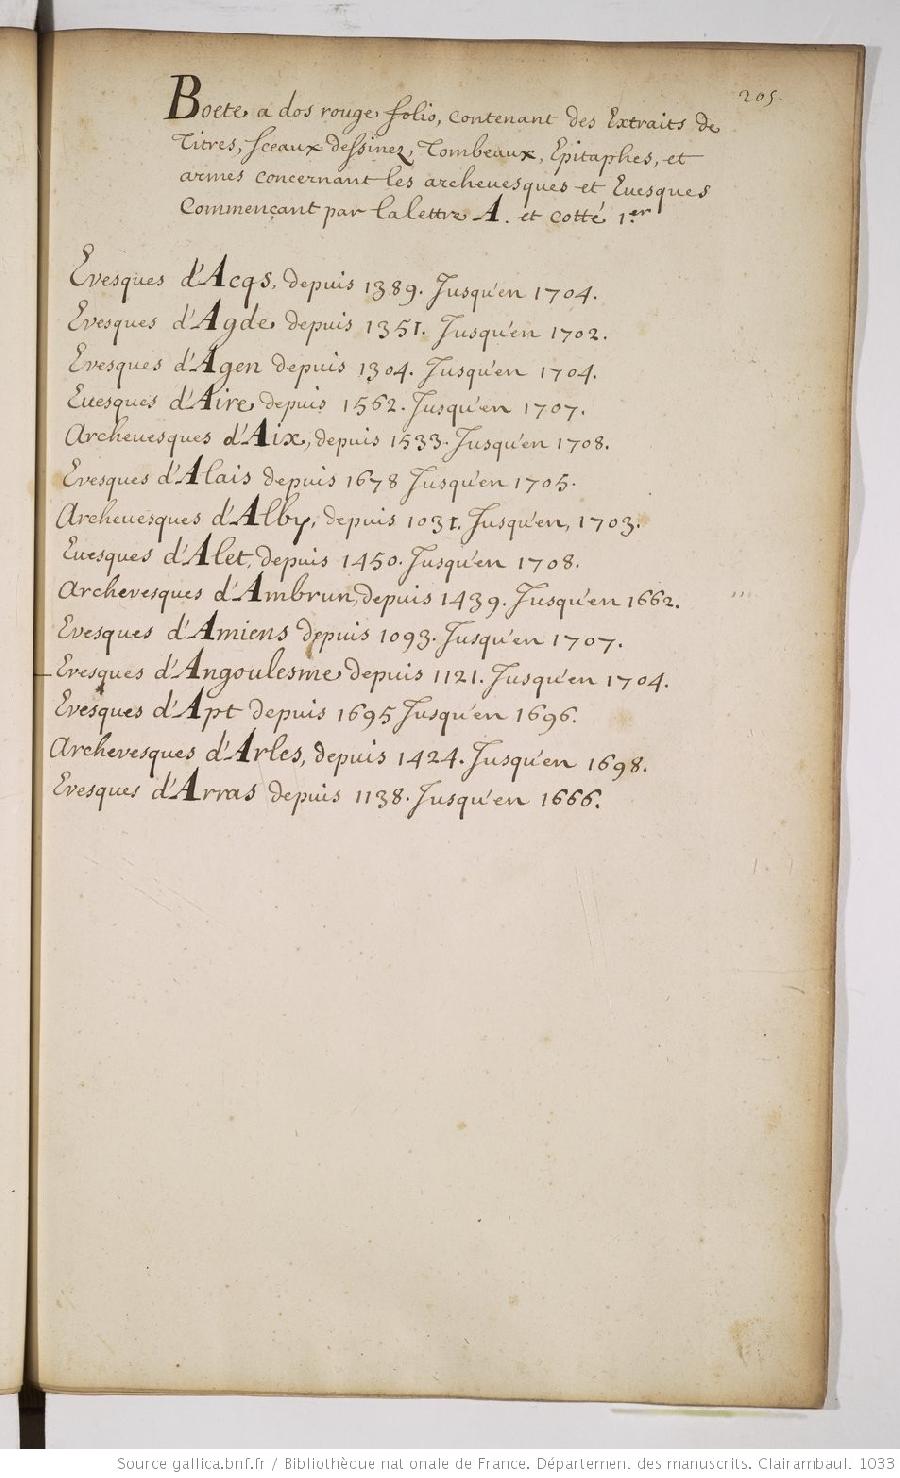 205.
Boete a dos rouge folio, contenant des Extraits de
Titres, sceaux dessinez, Tombeaux, Epitaphes, et
armes concernant les archeuesques et Euesques
Commençant par la lettre A. et cotté 1.er
Evesques d'Acqs, depuis 1389. Jusqu'en 1704.
Evesques d'Agde depuis 1351. Jusqu'en 1702.
Evesques d'Agen depuis 1304. Jusqu'en 1704.
Euesques d'Aire depuis 1562. Jusqu'en 1707.
Archeuesques d'Aix, depuis 1533. Jusqu'en 1708.
Evesques d'Alais depuis 1678 Jusqu'en 1705.
Archeuesques d'Alby, depuis 1031. Jusqu'en, 1703.
Euesques d'Alet, depuis 1450. Jusqu'en 1708.
Archevesques d'Ambrun, depuis 1439. Jusqu'en 1662.
Evesques d'Amiens depuis 1093. Jusqu'en 1707.
Evesques d'Angoulesme depuis 1121. Jusqu'en 1704.
Evesques d'Apt depuis 1695 Jusqu'en 1696.
Archevesques d'Arles, depuis 1424. Jusqu'en 1698.
Evesques d'Arras depuis 1138. Jusqu'en 1666.
Source gallica.bnf.fr / Bibliothèque nationale de France. Département des manuscrits. Clairambault 1033